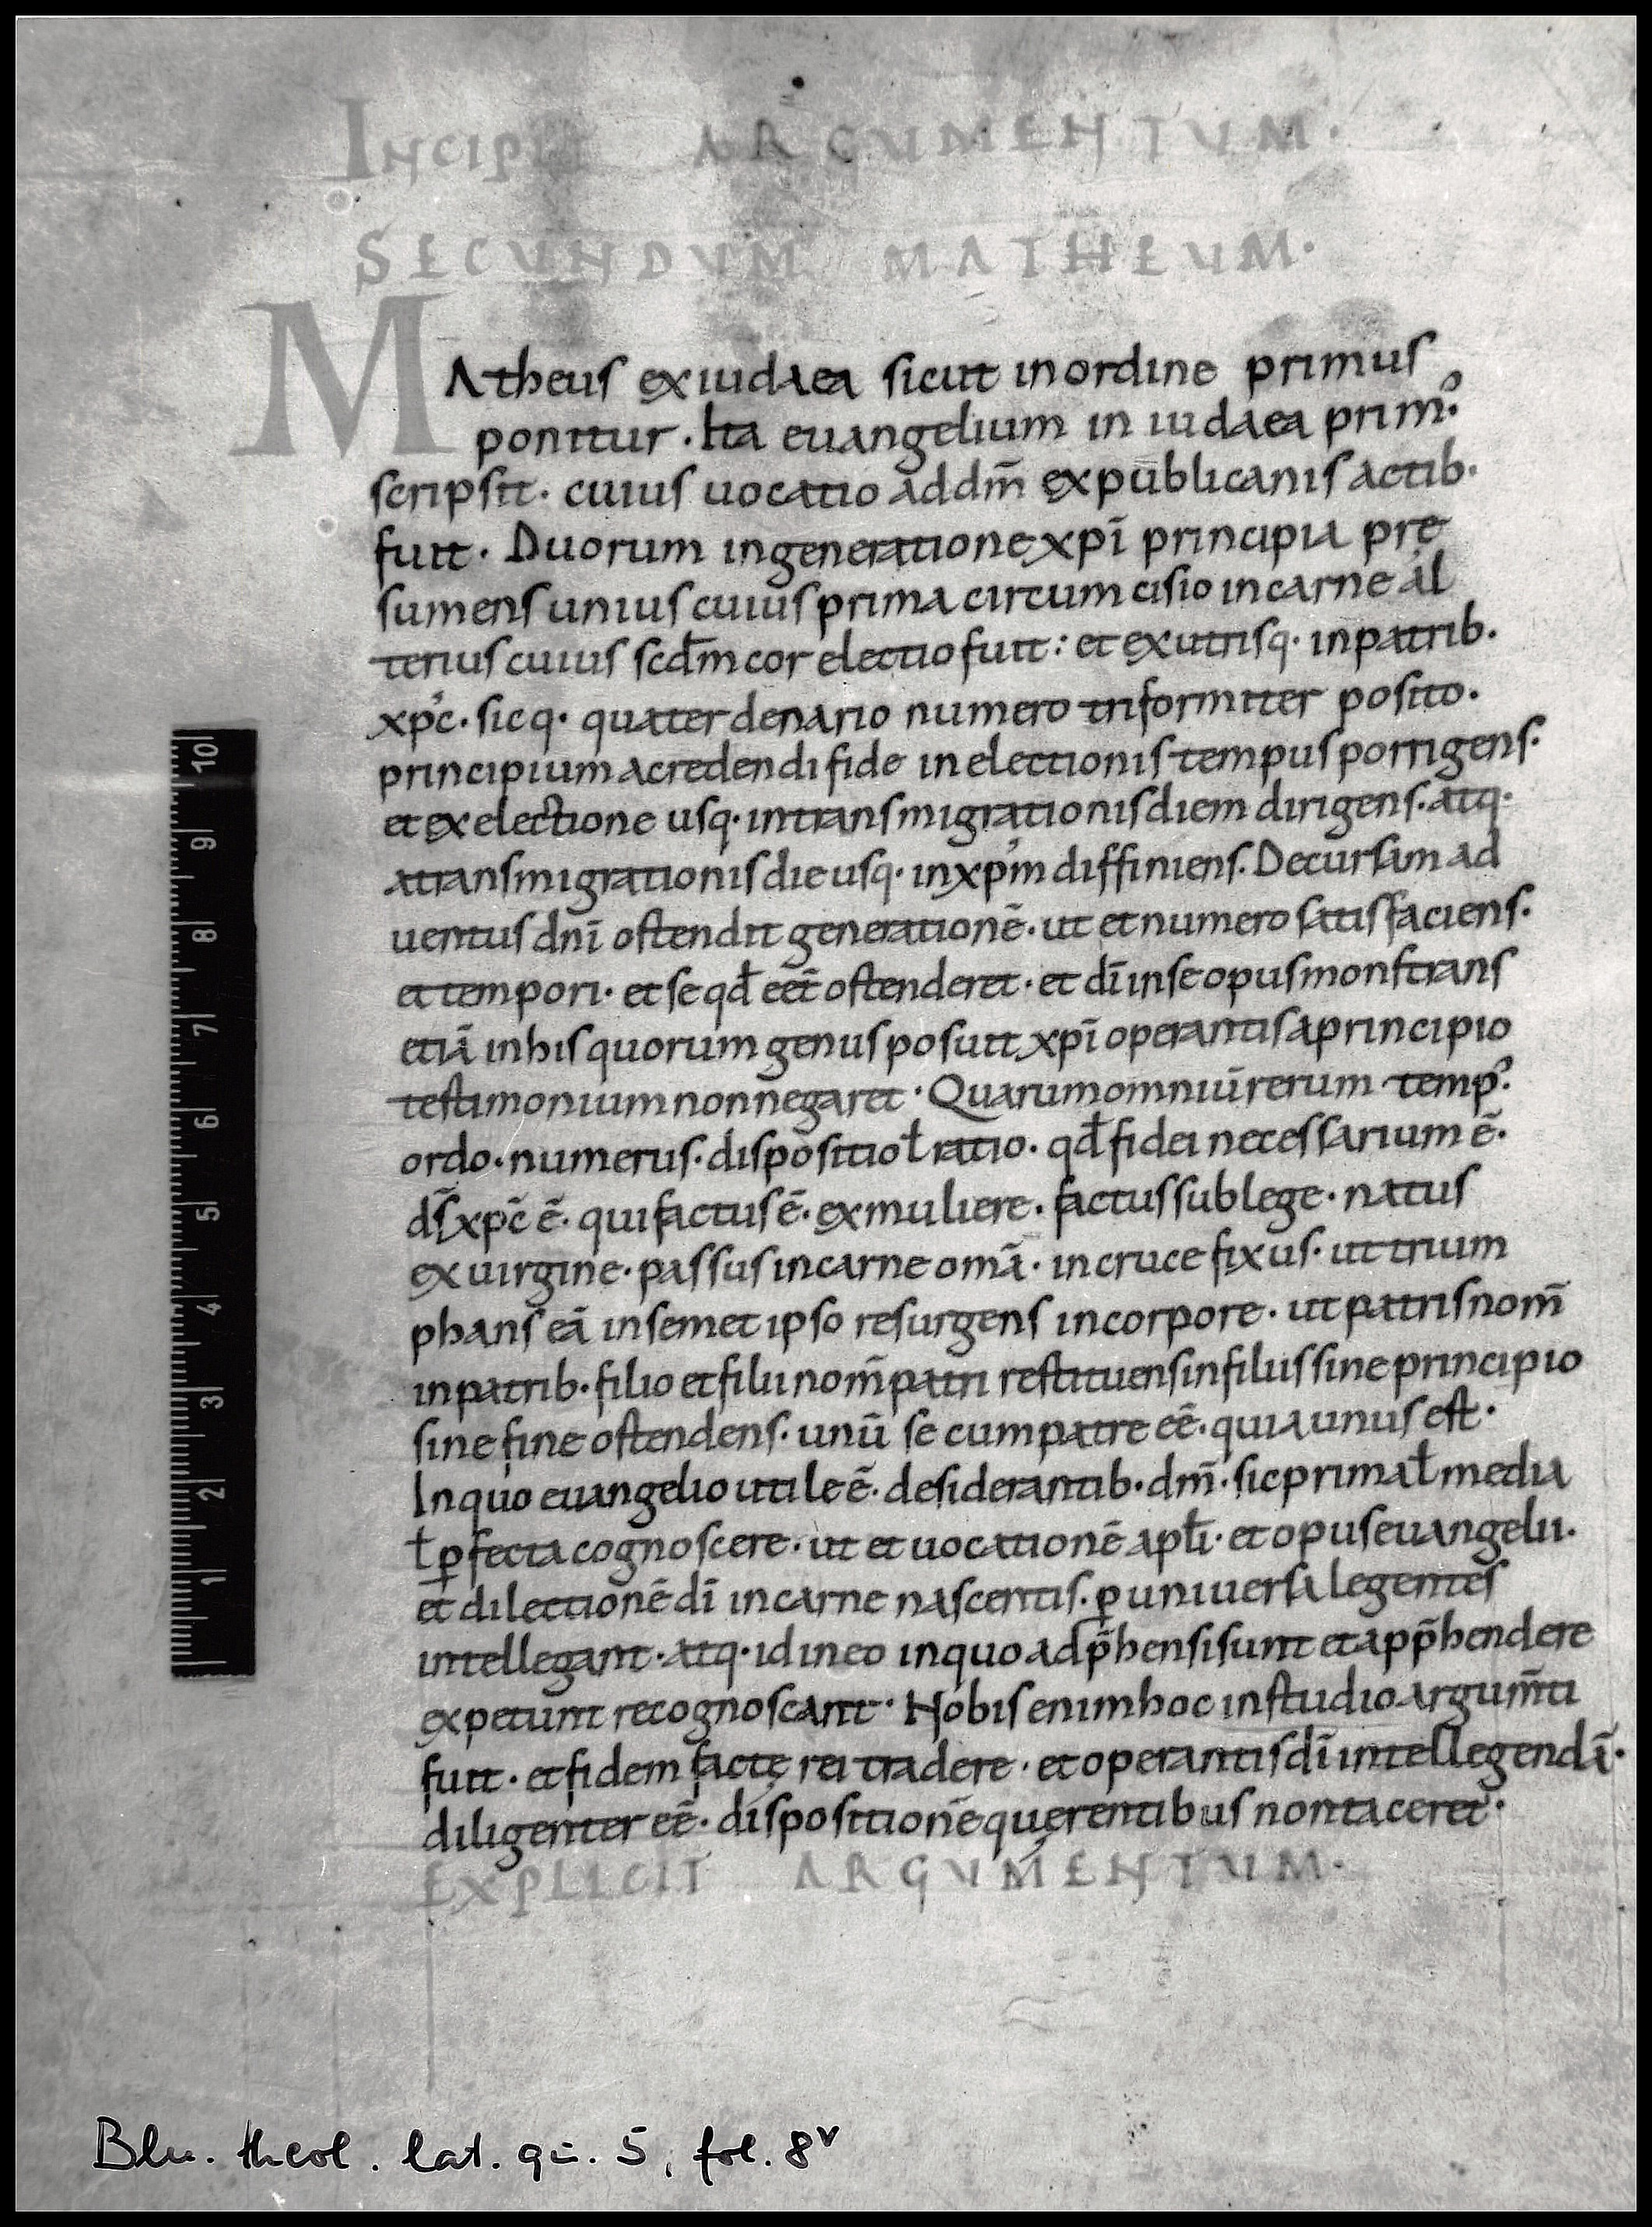 INCIPIT ARGUMENTUM·
SECUNDUM MATHEUM·
MAtheus exiudaea sicut inordine primus
ponitur · Ita euangelium in iudaea prim᾽·
scripsit · cuius uocatio addm̄ expublicanis actib·
fuit · Duorum ingeneratione xpī principia pre
sumens unius cuius prima circumcisio incarne al
terius cuius scdm̄ cor electio fuit: et exutrisq· inpatrib·
xp̄c · sicq· quaterdenario numero triformiter posito·
principium acredendi fide inelectionis tempus porrigens·
et exelectione usq· intransmigrationis diem dirigens· atq·
atransmigrationis die usq· inxpm̄ diffiniens· Decursam ad
uentus dnī ostendit generationē· ut et numero satisfaciens·
et tempori· et se qđ eēt ostenderet· et dī inse opus monstrans
etiā inhis quorum genus posuit xpī operantis aprincipio
testimonium non negaret· Quarum omniū rerum temp᾽·
ordo· numerus· dispositio ł ratio· qđ fidei necessarium ē·
ds̄ xpc̄ ē· qui factus ē· exmuliere· factus sublege· natus
ex uirgine· passus incarne omā· incruce fixus· ut trium
phans eā insemet ipso resurgens incorpore· ut patris nom̄
inpatrib· filio et filii nom̄ patri restituens infiliis sine principio
sine fine ostendens· unū se cum patre eē· quia unus est·
Inquo euangelio utile ē· desiderantib· dm̄· sic prima ł media
ł ꝑfecta cognoscere· ut et uocationē apłi· et opus euangelii·
et dilectionē dī incarne nascentis· ꝑ uniuersa legentes
intellegant· atq· id ineo inquo adp̄hensi sunt et app̄hendere
expetunt recognoscant· Nobis enim hoc instudio argum̄ti
fuit· et fidem factę rei tradere· et operantis dī intellegendā·
diligenter eē· dispositionē quęrentibus non taceret·
EXPLICIT ARGUMENTUM·
10
9
8
7
6
5
4
3
2
1
Bln. theol. lat. qu. 5, fol. 8v